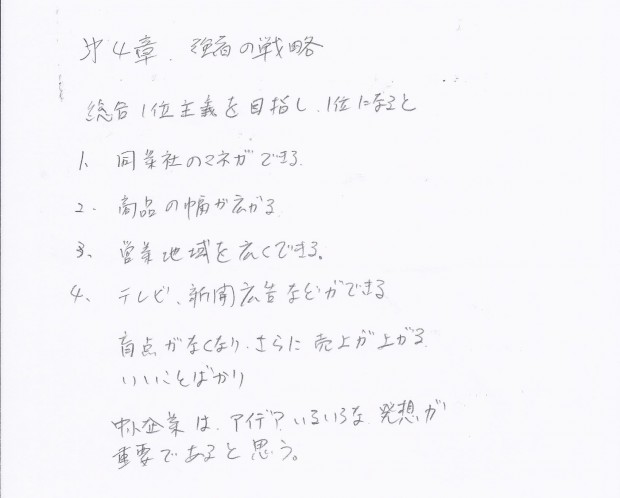 第4章. 強者の戦略
総合1位主義を目指し、1位になると
1、同業社のマネができる.
2、商品の幅が広がる
3、営業地域を広くできる。
4、テレビ、新聞広告などができる
盲点がなくなり、さらに売上が上がる.
いいことばかり
中小企業は、アイデア いろいろな 発想が
重要であると思う。